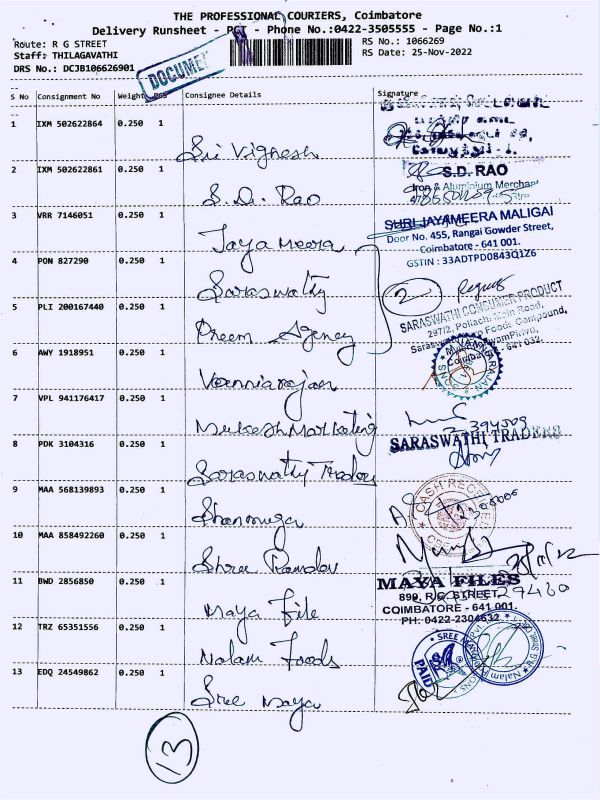 THE PROFESSIONAL COURIERS, Coimbatore
Delivery Runsheet - PGT - Phone No.:0422-3505555 - Page No.:1
Route: R G STREET RS No.: 1066269
Staff: THILAGAVATHI RS Date: 25-Nov-2022
DRS No.: DCJB106626901
S No Consignment No Weight PCS Consignee Details Signature
1 IXM 502622864 0.250 1
Sri Vignesh
2 IXM 502622861 0.250 1
S.D. Rao
S.D. RAO
Iron & Aluminium Merchant
3 VRR 7146051 0.250 1
Jaya Meera
SHRI JAYAMEERA MALIGAI
Door No. 455, Rangai Gowder Street,
Coimbatore - 641 001.
GSTIN : 33ADTPD0843Q1Z6
4 PON 827290 0.250 1
Saraswathy
2
SARASWATHI CONSUMER PRODUCT
297/2, Pollachi Main Road,
5 PLI 200167440 0.250 1
Preem Agency
6 AWY 1918951 0.250 1
Vanniarajan
7 VPL 941176417 0.250 1
Mukesh Marketing
8 PDK 3104316 0.250 1
SARASWATHI TRADERS
Saraswathi Traders
9 MAA 568139893 0.250 1
Shanmuga
10 MAA 858492260 0.250 1
Shree Ramdev
11 BWD 2856850 0.250 1
MAYA FILES
899, R.G. STREET,
COIMBATORE - 641 001.
PH: 0422-2304632
Maya File
12 TRZ 65351556 0.250 1
Nalam Foods
PAID
13 EDQ 24549862 0.250 1
Sree Maya
13